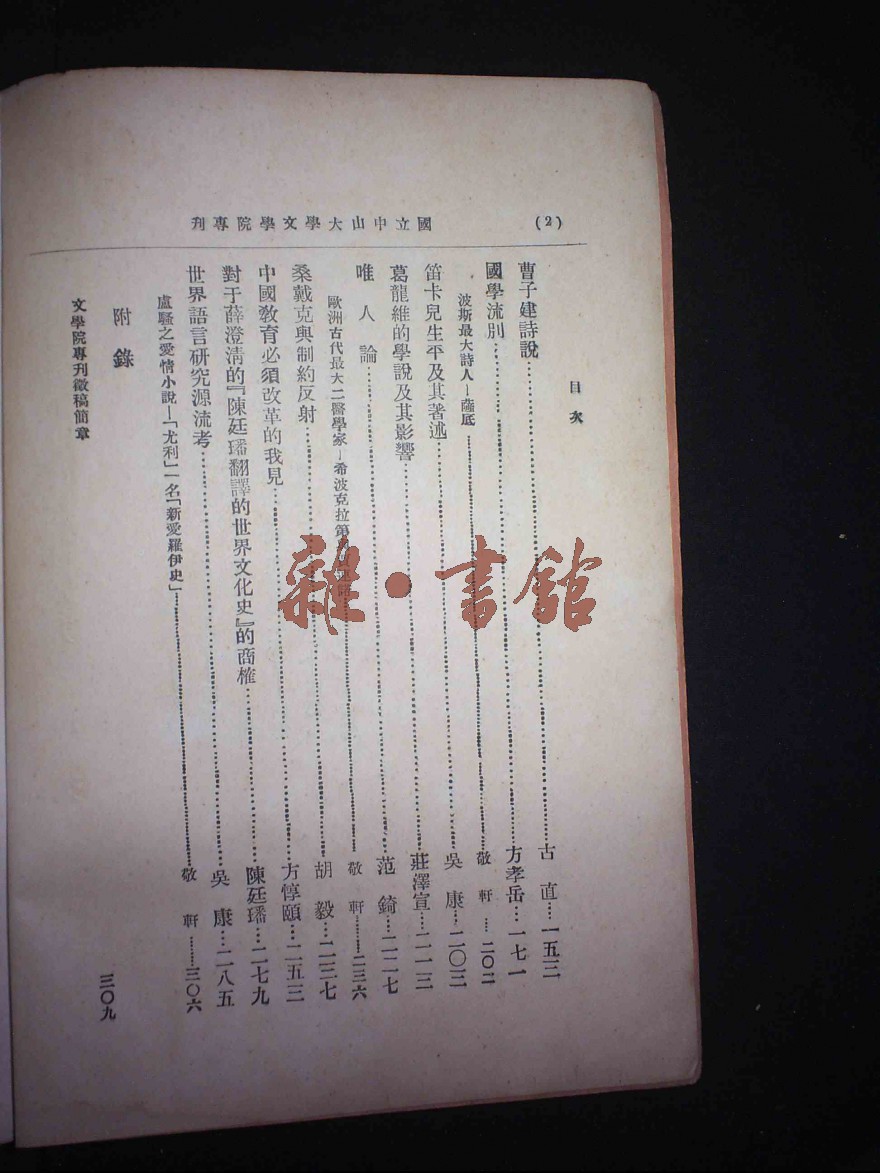 (2)
國立中山大學文學院專刊
目次
曹子建詩說……古直…一五三
國學流別……方孝岳…一七一
波斯最大詩人—薩底……敬軒…二〇二
笛卡兒生平及其著述……吳康…二〇三
葛龍維的學說及其影響……莊澤宣…二一三
唯人論……范錡…二二七
歐洲古代最大二醫學家—希波克拉第……敬軒…二三六
桑戴克與制約反射……胡毅…二三七
中國教育必須改革的我見……方惇頤…二五三
對于薛澄清的『陳廷璠翻譯的世界文化史』的商榷……陳廷璠…二七九
世界語言研究源流考……吳康…二八五
盧騷之愛情小說—「尤利」一名「新愛羅伊史」……敬軒……三〇六
附錄
文學院專刊徵稿簡章 三〇九
雜·書館